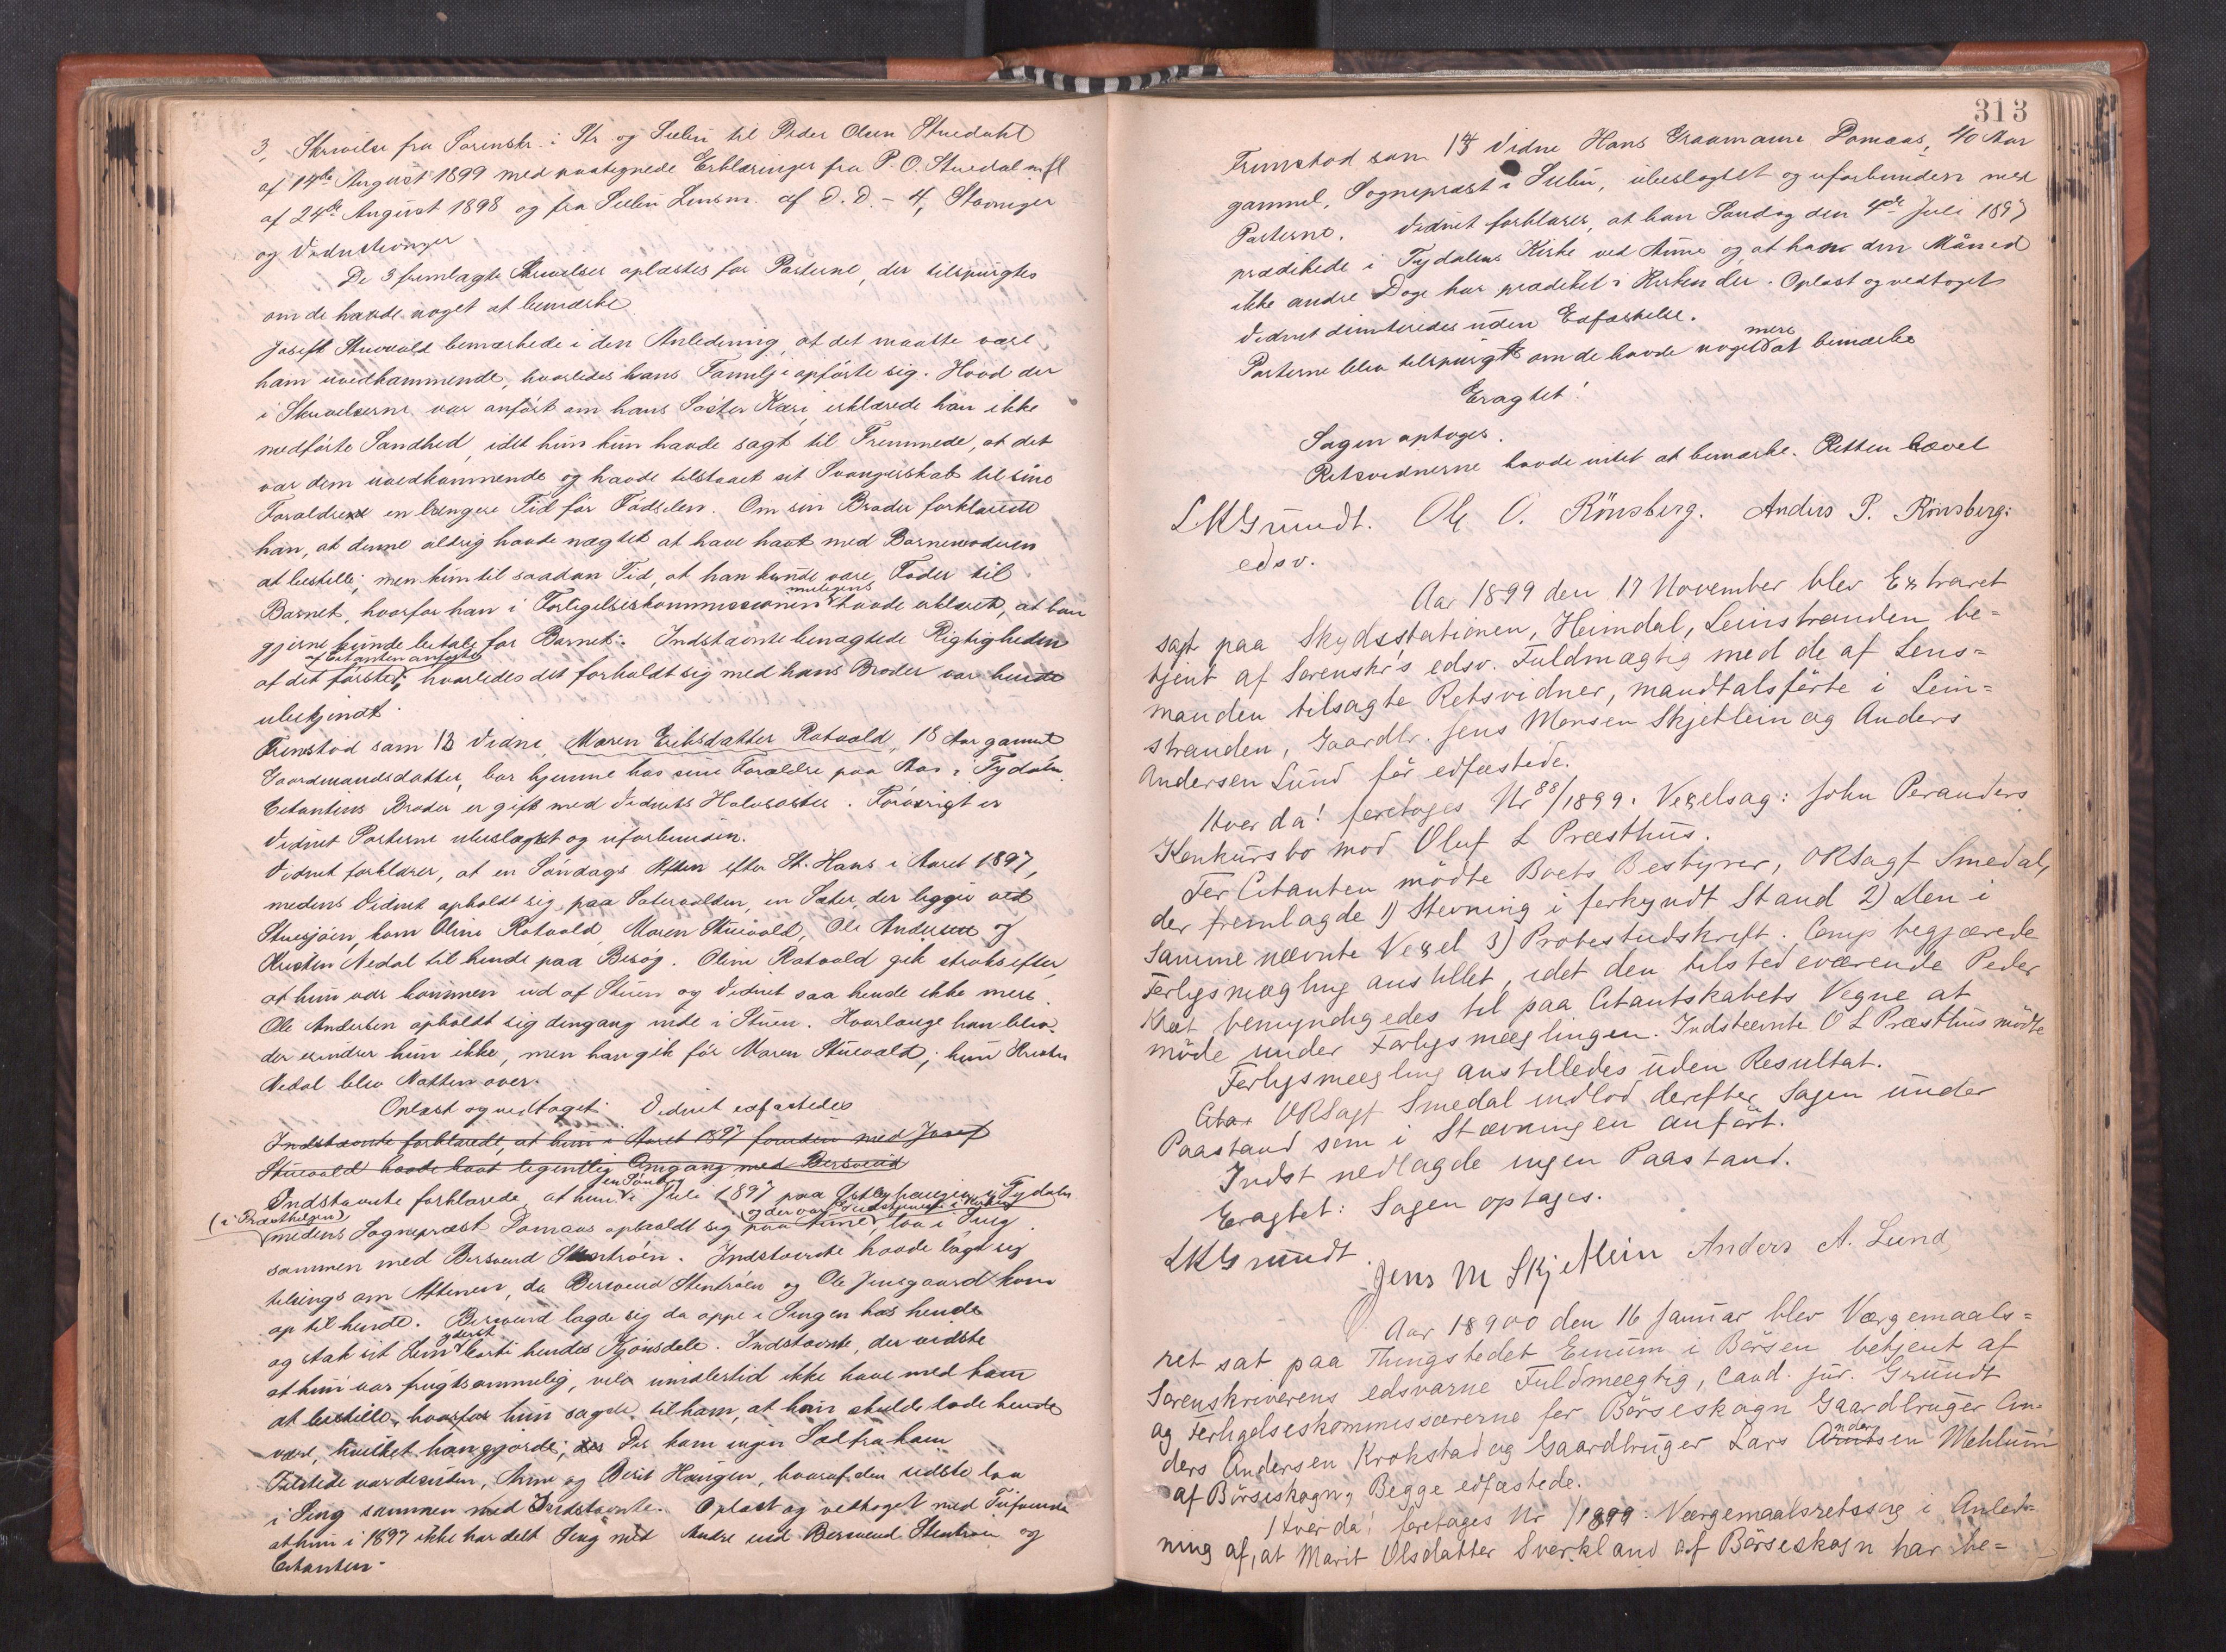 3, Skrivelse fra Sorenskr. i Str og Selbu til Peder Olsen Stuedahl
af 14de August 1899 med paategnede Erklæringer fra P. O. Stuedal m. fl
af 24de August 1898 og fra Selbu Lensm. af D. D. - 4, Stævninger
og Vidnestevninger
De 3 fremlagte Skrivelser oplæstes for Parterne, der tilspurgtes
om de havde noget at bemærke
Josefh Stuevold bemærkede i den Anledning, at det maatte være
ham uvedkommende, hvorledes hans Familje opførte sig. Hvad der
i Skrivelserne var anført om hans Søster Kari, erklærede han ikke
medførte Sandhed, idet hun kun havde sagt til Fremmede, at det
var dem uvedkommende og havde tilstaaet sit Svangerskab til sine
Forældre en længere Tid før Fødselen. Om sin Broder forklarede
han, at denne aldrig havde nægtet at have havt med Barnemoderen
at bestille; men kun til saadan Tid, at han kunde være Fader til
Barnet, hvorfor han i Forligelseskommissionen muligens havde erklæret, at han
gjerne kunde betale for Barnet. Indstævnte benægtede Rigtigheden
af det første af Citanten anførte; hvorledes det forholdt sig med hans Broder var hende
ubekjendt.
Fremstod som 13 Vidne, Maren Eriksdatter Rotvold, 18 Aar gammel
Gaardmandsdatter, bor hjemme hos sine Forældre paa Aas i Tydalen.
Citantens Broder er gift med Vidnets Halvsøster. Forøvrigt er
Vidnet Parterne ubeslægtet og uforbunden.
Vidnet forklarer, at en Søndags Aften efter St. Hans i Aaret 1897,
medens Vidnet opholdt sig paa Sætervolden, en Sæter, der ligger ved
Stuesjøen, kom Oline Rotvold, Maren Stuevold, Ole Andersen og
Kristen Nedal til hende paa Besøg. Oline Rotvold gik straks efter
at hun var kommen ud af Stuen og Vidnet saa hende ikke mere.
Ole Andersen opholdt sig dengang inde i Stuen. Hvorlænge han blev
der erindrer hun ikke, men han gik før Maren Stuevold; hun Kristen
Nedal blev Natten over.
Oplæst og vedtaget. Vidnet edfæstedes
Indstævnte forklarede, at hun i Aaret 1897 foruden med Josef
Stuevold havde havt legemlig Omgang med Bersvend
Indstævnte forklarede, at hun en Søndag i Juli 1897 paa Østbyhaugen i Tydalen
(i Præsthelgen) medens Sognepræst Domaas opholdt sig paa Aune og der var Gudstjeneste i Kirken, laa i Seng
sammen med Bersvend Stentrøen. Indstævnte havde lagt sig
tilsengs om Aftenen, da Bersvend Stentrøen og Ole Jensgaard kom
op til hende. Bersvend lagde sig da oppe i Sengen hos hende
og stak sit Lem yderst bort i hendes Kjønsdele. Indstævnte, der vidste
at hun var frugtsommelig, vilde imidlertid ikke have med ham
at bestille, hvorfor hun sagde til ham, at han skulde lade hende
være, hvilket han gjorde; Der kom ingen Sæd fra ham
Tilstede var desuden, Anne og Berit Haugen, hvoraf den sidste laa
i Seng sammen med Indstævnte. Oplæst og vedtaget med Tilføiende
at hun i 1897 ikke har delt Seng med Andre end Bersvend Stentrøen og
Citanten.
313
Fremstod som 14 Vidne Hans Graamann Domaas, 40 Aar
gammel, Sognepræst i Selbu, ubeslægtet og uforbunden med
Parterne. Vidnet forklarer, at han Søndag den 4de Juli 1897
prædikede i Tydalens Kirke ved Aune og at han den Måned
ikke andre Dage har prædiket i Kirken der. Oplæst og vedtaget
Vidnet dimiteredes uden Edfæstelse.
Parterne blev tilspurgt om de havde noget mere at bemærke
Eragtet!
Sagen optages.
Retsvidnerne havde intet at bemærke. Retten hævet
LKGrundt. Ole O. Rönsberg. Anders P. Rönsberg.
edsv.
Aar 1899 den 17 November blev Extraret
sat paa Skydsstationen, Heimdal, Leinstranden be=
tjent af Sorenskr's edsv. Fuldmægtig med de af Lens=
manden tilsagte Retsvidner, mandtalsførte i Lein=
stranden, Gaardbr. Jens Monsen Skjetlein og Anders
Andersen Lund før edfæstede.
Hver da! foretoges Nr 88/1899. Vexelsag: John Peranders
Konkursbo mod Oluf L Præsthus.
For Citanten mødte Boets Bestyrer, ORSagf Smedal,
der fremlagde 1) Stevning i forkyndt Stand 2) Den i
samme nævnte Vexel 3) Protestudskrift. Comp begjærede
Forligsmægling anstillet, idet den tilstedeværende Peder
Kvæt bemyndigedes til paa Citantskabets Vegne at
møde under Forligsmæglingen. Indstævnte O L Præsthus mødte
Forligsmægling anstilledes uden Resultat.
Citar ORSagf Smedal indlod derefter Sagen under
Paastand som i Stævningen anført.
Indst nedlagde ingen Paastand.
Eragtet: Sagen optages.
LKGrundt. Jens M Skjetlein Anders A. Lund
Aar 18900 den 16 Januar blev Værgemaals=
ret sat paa Thingstedet Eenum i Børsen betjent af
Sorenskriverens edsvorne Fuldmægtig, Cand. jur. Grundt
og Forligelseskommissærerne for Børseskogn Gaardbruger An=
ders Andersen Krokstad og Gaardbruger Lars Andersen Mehlum
af Børseskogn, Begge edfæstede.
Hver da! foretages Nr /1899: Værgemaalsretssag i Anled=
ning af, at Marit Olsdatter Sverkland af Børseskogn har be=